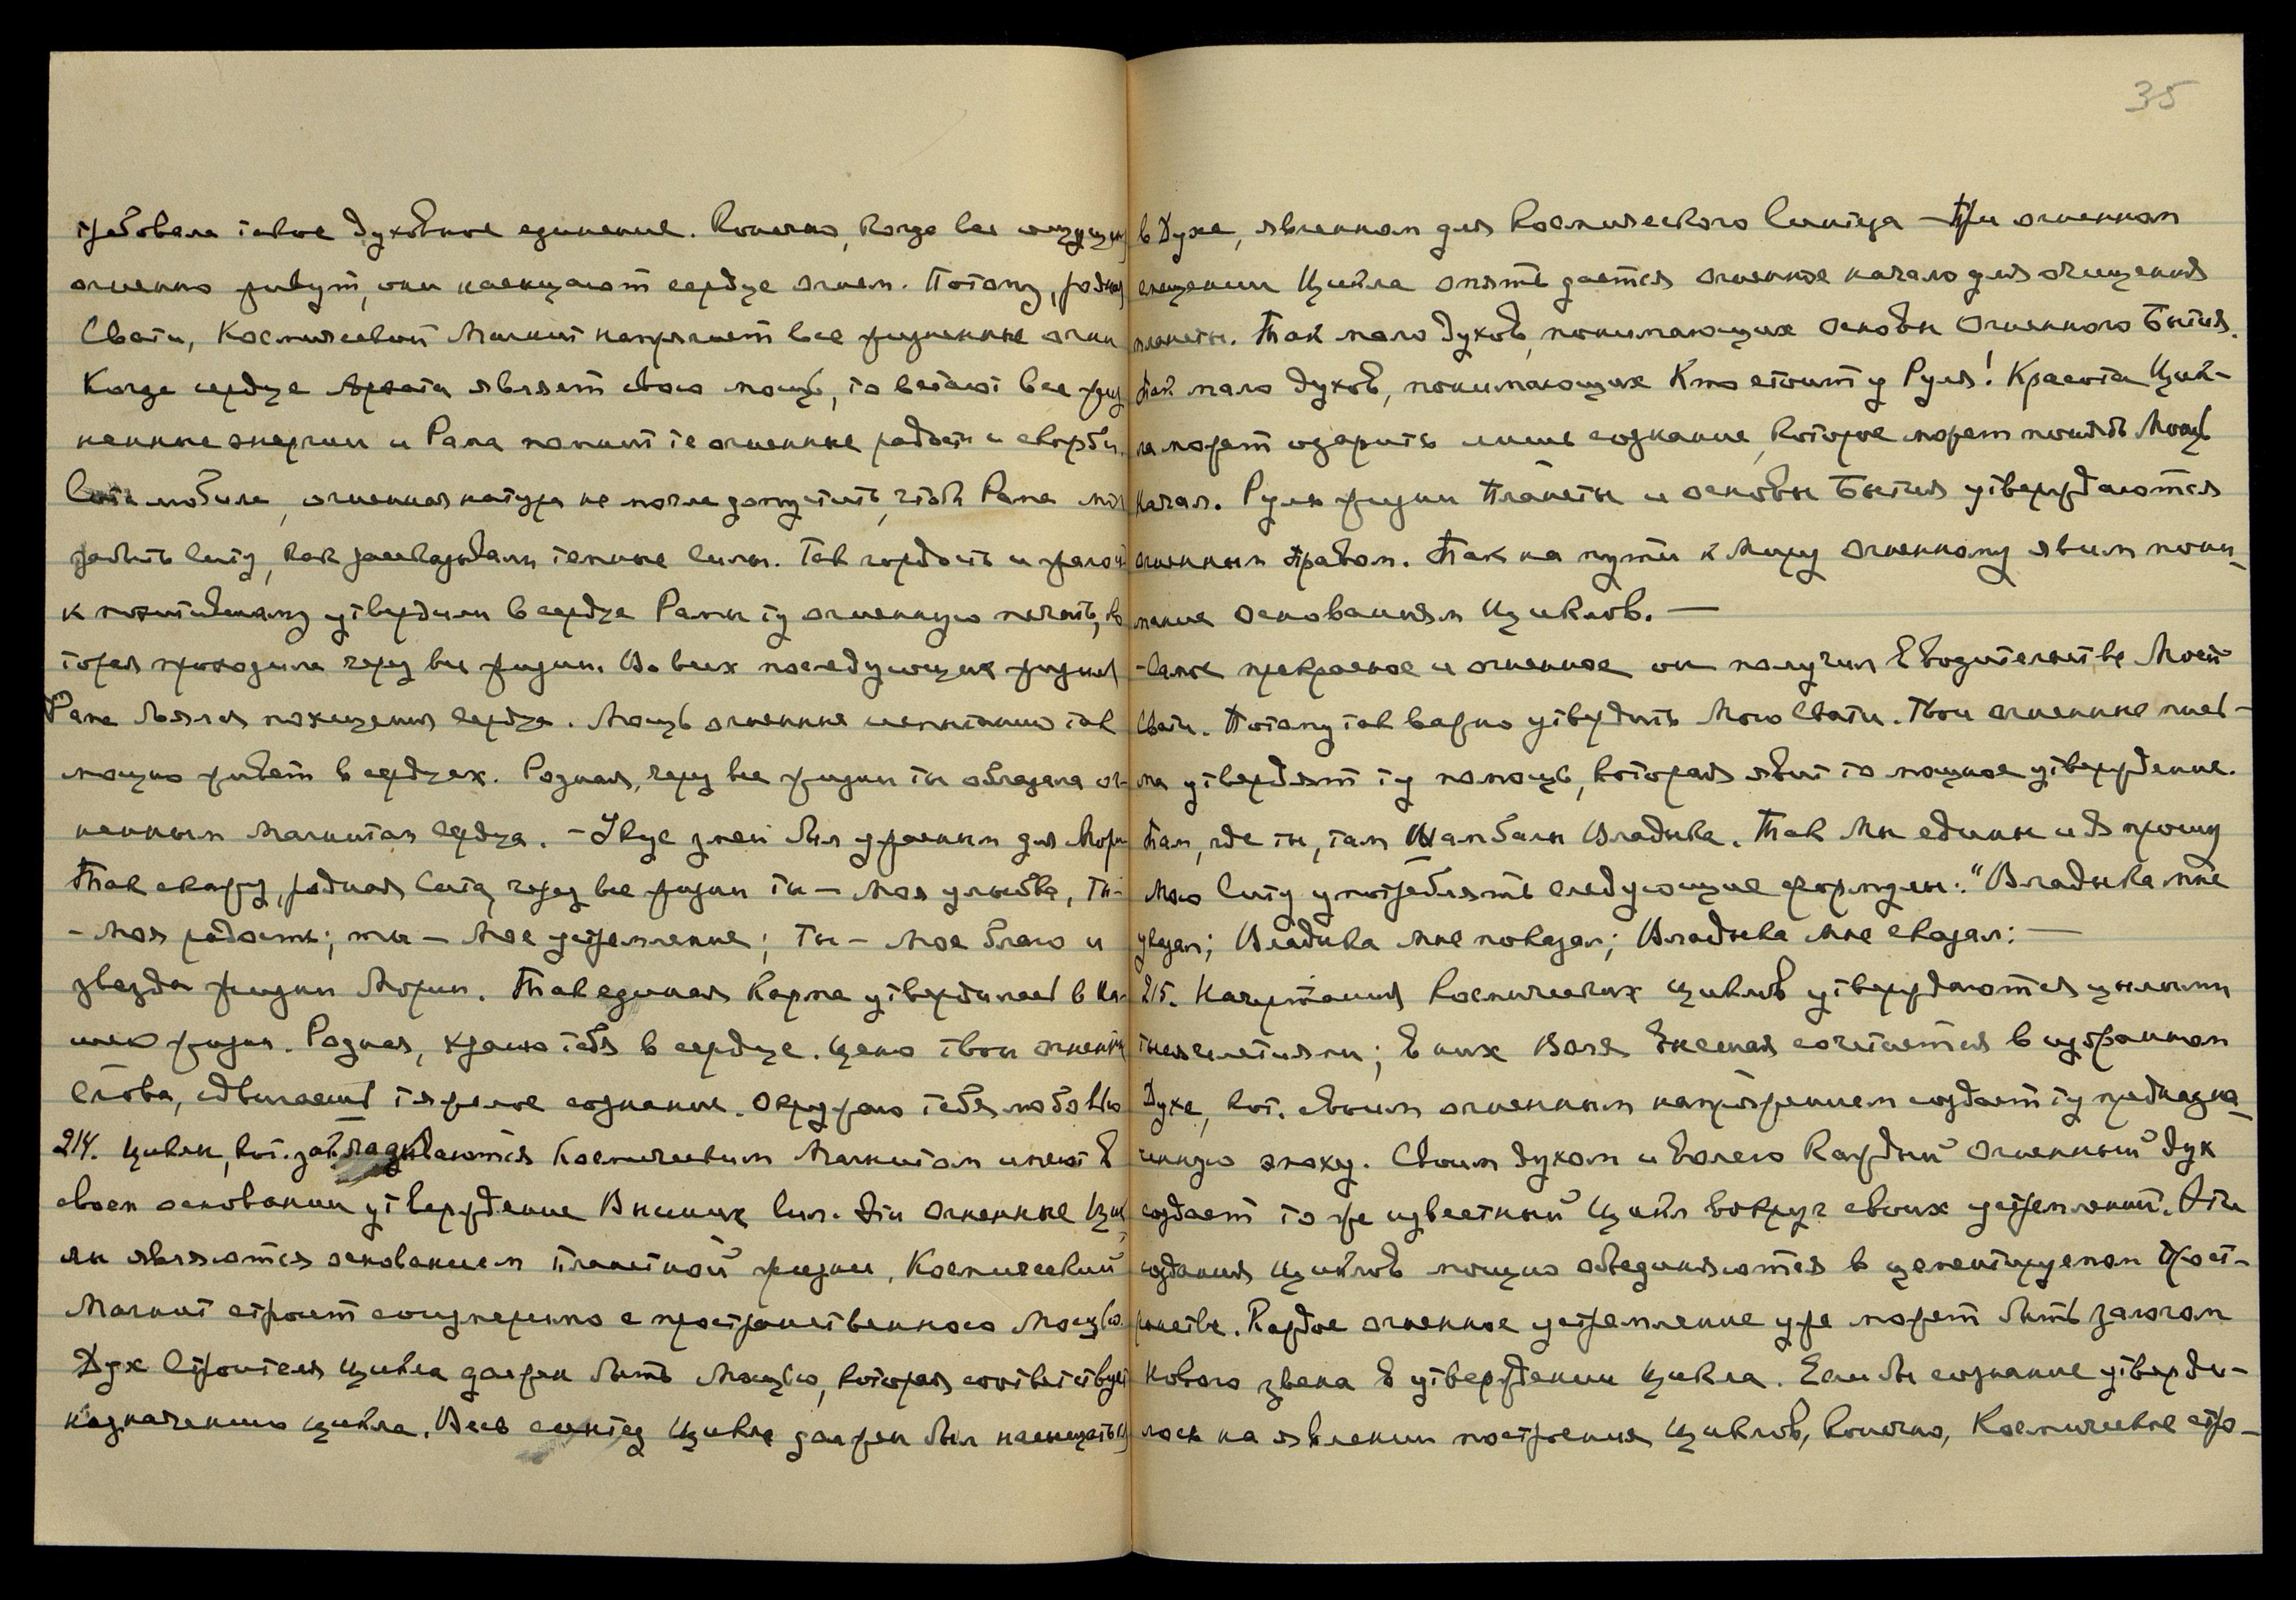 требовала такое духовное единение. Конечно, когда все ощущения
огненно живут, они насыщают сердце огнем. Потому, родная
Свати, Космический Магнит напрягает все жизненные огни
Когда сердце Архата являет свою мощь, то встают все жиз
ненные энергии и Рама помнит те огненные радости и скорби.
Сита любила, огненная натура не могла допустить, чтоб Рама мог
забыть Ситу, как рассказывали темные силы. Так гордость и
к похитившему утвердили в сердце Рамы ту огненную печать, ко
торая проходила через все жизни. Во всех последующих жизнях
Рама боялся похищения сердца. Мощь огненная испытанно так
мощно живет в сердцах. Родная, через все жизни ты обладала ог-
ненным магнитом сердца. - змей был ужасным для Мории
Так скажу, родная Сита, через все жизни ты — Моя улыбка, ты -
- Моя радость; ты — Мое устремление; ты — Мое благо и
звезда жизни Мории. Так единая Карма утвердилась в На-
ших жизнях. Родная, храню тебя в сердце. Ценю твои огненные
слова, сдвигаешь тяжелое сознание. Окружаю тебя любовью
214. Циклы, кот. закладываются Космическим Магнитом имеют в
своем основании утверждение Высших Сил. Эти Огненные Цик
лы являются основанием планетной жизни. Космический
Магнит строит соизмеримо с пространственною Мощью.
Дух Строителя Цикла должен быть Мощью, которая соответствует
назначению цикла. Весь синтез Цикла должен был насыщаться
35
в Духе, явленном для Космического Синтеза — При огненном
смещении Цикла опять дается огненное начало для очищения
планеты. Так мало духов, понимающих Основы Огненного Бытия.
Так мало духов, понимающих Кто стоит у Руля! Красота Цик-
ла может озарить лишь сознание, которое может понять Мощь
Начал. Руль жизни Планеты и основы Бытия утверждаются
огненным Правом. Так на пути к Миру Огненному явим пони_
мание Основаниям Циклов. —
-Самое прекрасное и огненное он получил в водительстве Моей
Свати. Потому так важно утвердить Мою Свати. Твои огненные пись-
ма утвердят ту помощь, которая явит то мощное утверждение.
Там, где ты, там Шамбалы Владыка. Так Мы едины и Я прошу
Мою Ситу употреблять следующие формулы: "Владыка мне
указал; Владыка мне показал; Владыка мне сказал: —
215. Начертания Космических циклов утверждаются целыми
тысячелетиями; в них Воля Высшая сочетается в избранном
Духе, кот. своим огненным напряжением создает ту предназна_
ченную эпоху. Своим духом и волею Каждый Огненный Дух
создает тоже известный Цикл вокруг своих устремлений. Эти
создания Циклов мощно объединяются в цементируемом Прост-
ранстве. Каждое огненное устремление уже может быть залогом
нового звена в утверждении Цикла. Если бы сознание утверди-
лось на явлении построения Циклов, Конечно, Космические стро_